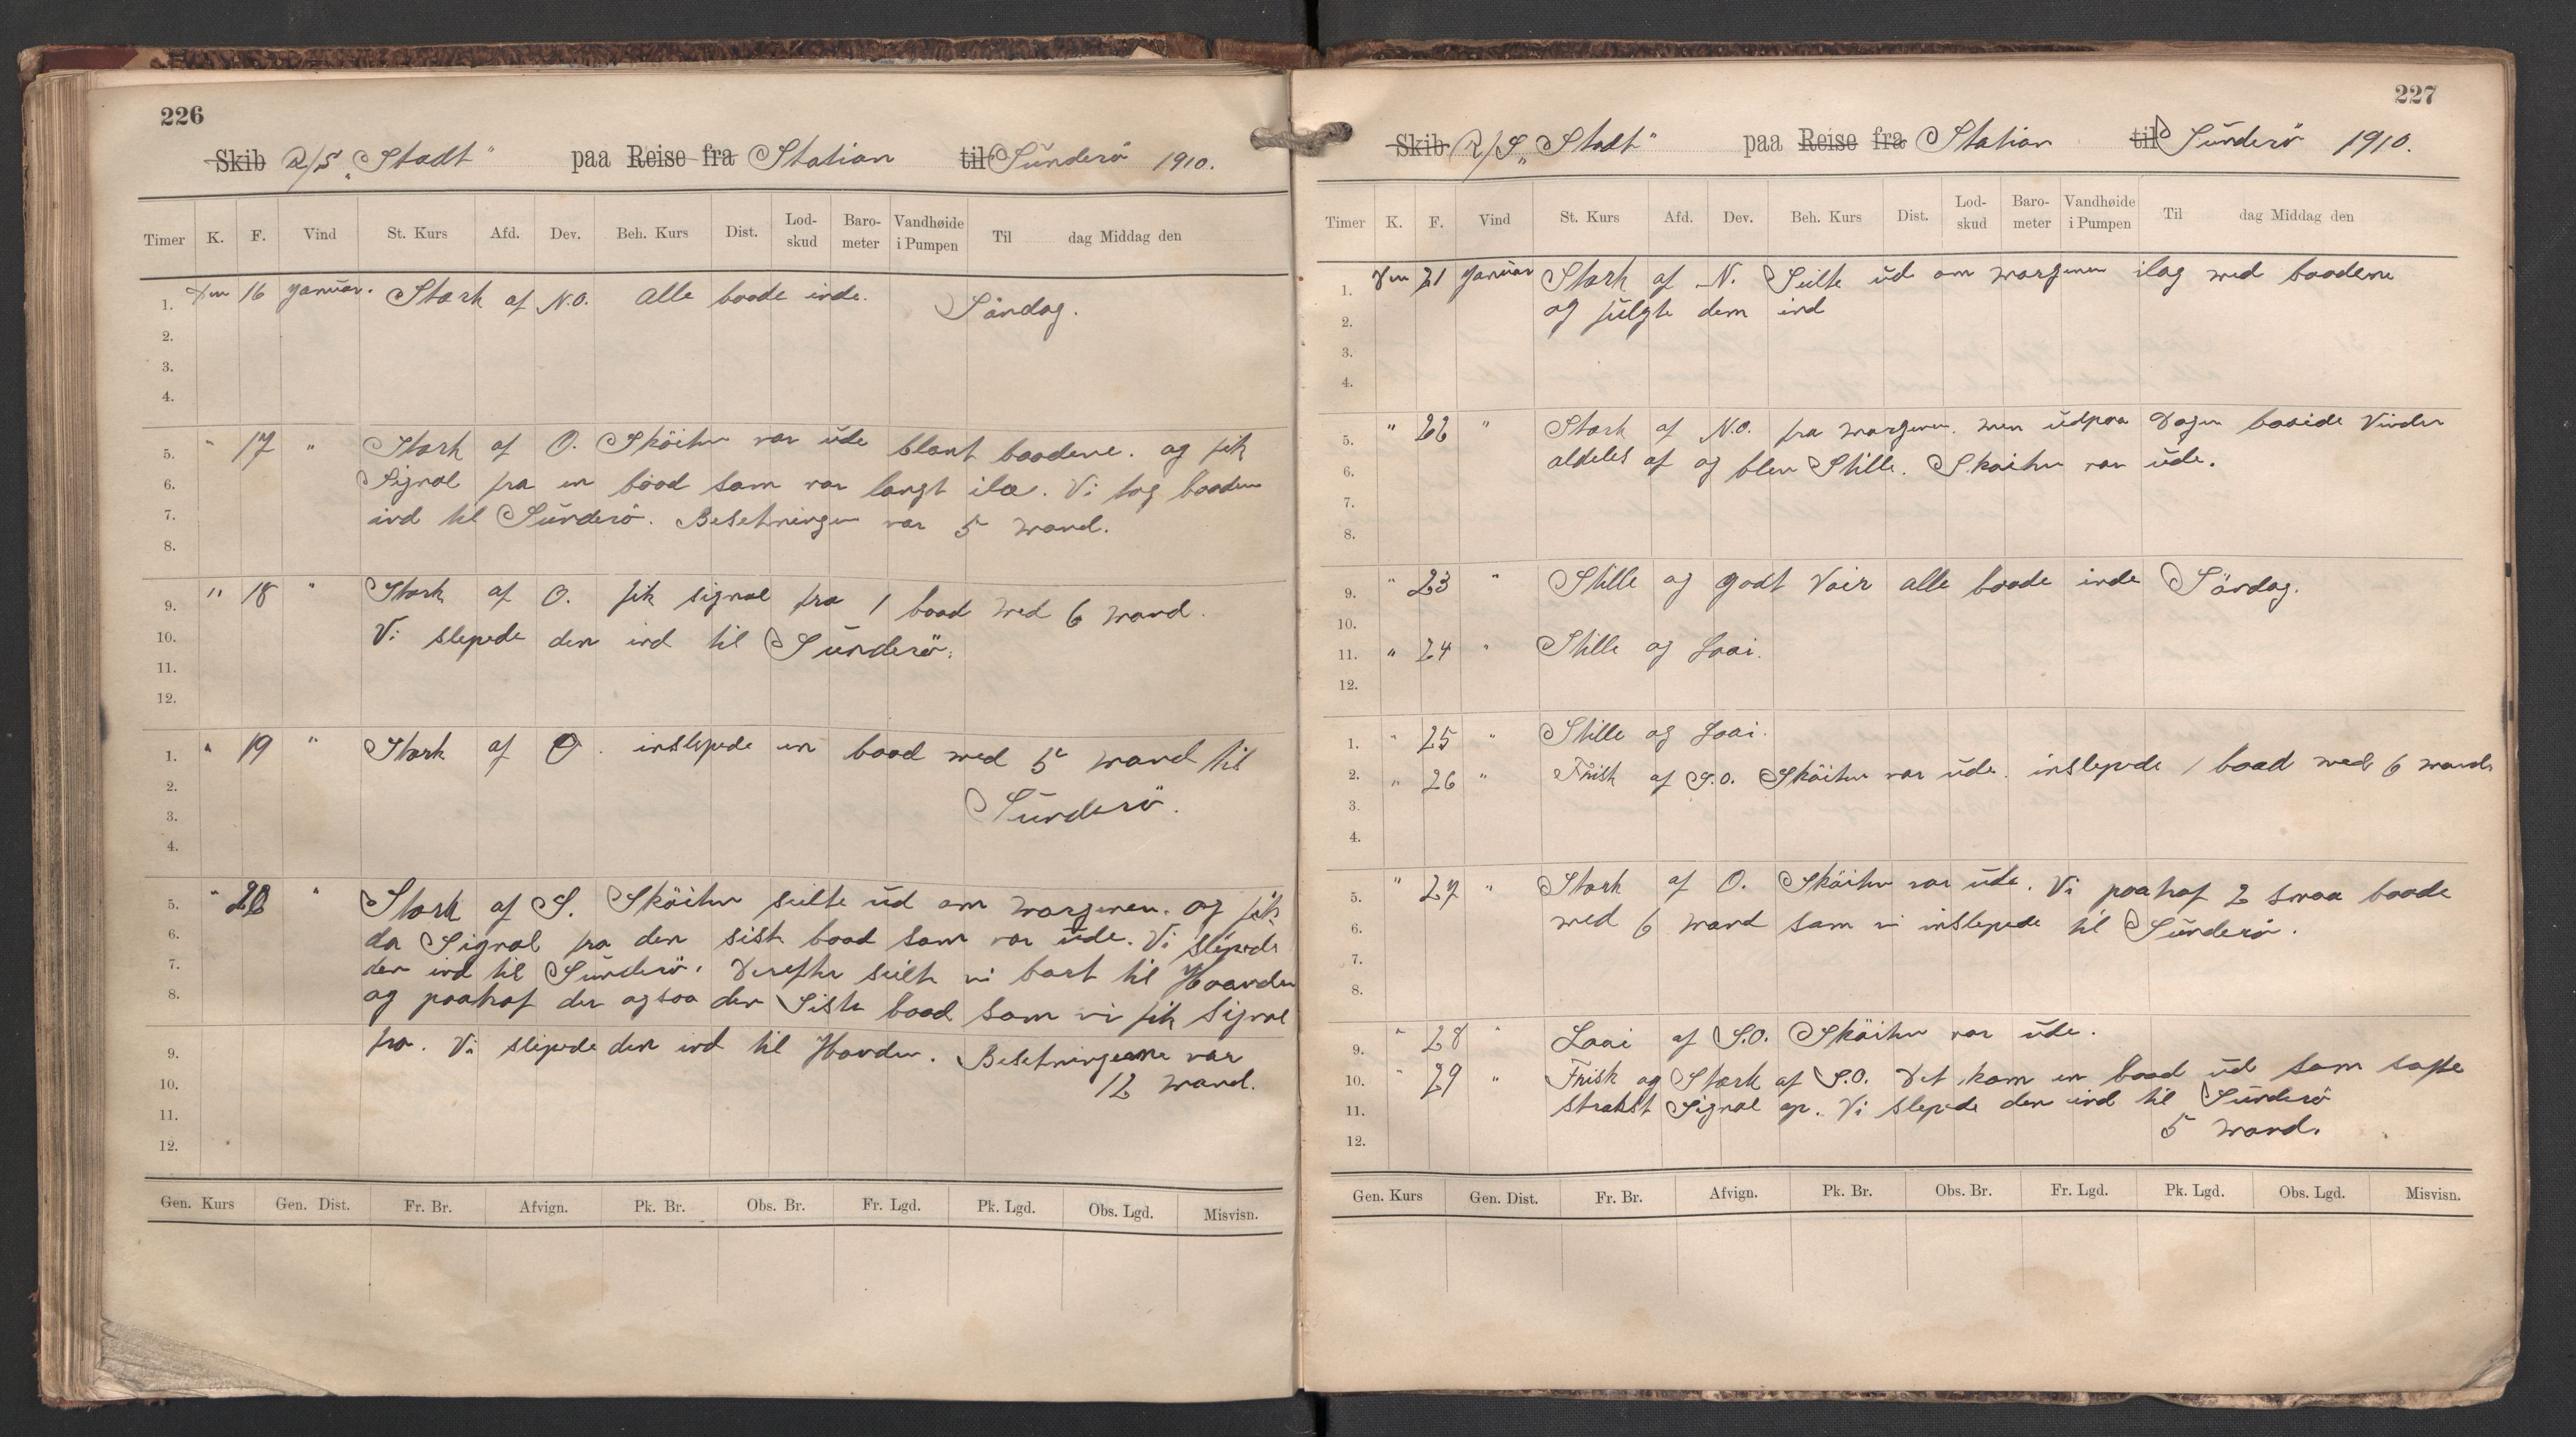 226
Skib R/S „Stadt" paa Reise fra Station til Sunderö 1910.
Timer K. F. Vind St. Kurs Afd. Dev. Beh. Kurs Dist. Lod-skud Baro-meter Vandhøide i Pumpen Til dag Middag den
1. Den 16 Januar. Stærk af N.O. Alle baade inde. Söndag.
2.
3.
4.
5. " 17 " Stærk af O. Sköiten var ude blant baadene. og fik
6. Signal fra en baad som var langt ilæ. Vi tog baaden
7. ind til Sunderö. Besetningen var 5 mand.
8.
9. " 18 " Stærk af O. fik signal fra 1 baad med 6 mand.
10. Vi slepede den ind til Sunderö.
11.
12.
1. " 19 " Stærk af O. inslepede en baad med 5 mand til
2. Sunderö.
3.
4.
5. " 20 " Stærk af S. Sköiten seilte ud om morgenen. og fik
6. da Signal fra den siste baad som var ude. Vi slepede
7. den ind til Sunderö. Derefter seilte vi bort til Havnden
8. og paatraf der ogsaa den Siste baad som vi fik Signal
9. fra. Vi slepede den ind til Havnden. Besetningerne var
10. 12 mand.
11.
12.
Gen. Kurs Gen. Dist. Fr. Br. Afvign. Pk. Br. Obs. Br. Fr. Lgd. Pk. Lgd. Obs. Lgd. Misvisn.
227
Skib R/S „Stadt" paa Reise fra Station til Sunderö 1910.
Timer K. F. Vind St. Kurs Afd. Dev. Beh. Kurs Dist. Lod-skud Baro-meter Vandhøide i Pumpen Til dag Middag den
1. Den 21 Januar Stærk af N. Seilte ud om morgenen ilag med baadene
2. og fulgte dem ind
3.
4.
5. " 22 " Stærk af N.O. fra morgenen. men udpaa Dagen Vinden
6. aldeles af og blev Stille. Skoiten var ude.
7.
8.
9. " 23 " Stille og godt Veir alle baade inde Söndag.
10.
11. " 24 " Stille og Laai.
12.
1. " 25 " Stille og Laai.
2. " 26 " Frisk af S.O. Sköiten var ude. inslepede 1 baad med 6 mand
3.
4.
5. " 27 " Stærk af O. Sköiten var ude. Vi paatraf 2 smaa baade
6. med 6 mand som vi inslepede til Sunderö.
7.
8.
9. " 28 " Laai af S.O. Sköiten var ude.
10. " 29 " Frisk og Stærk af S.O. Det kom en baad ud som satte
11. strakst Signal op. Vi slepede den ind til Sunderö
12. 5 mand.
Gen. Kurs Gen. Dist. Fr. Br. Afvign. Pk. Br. Obs. Br. Fr. Lgd. Pk. Lgd. Obs. Lgd. Misvisn.